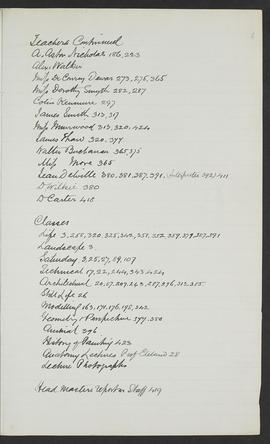 Teachers Continued
A. Aston Nicholas 186, 223
Alex. Walker
Miss De Courcy Dewar 273, 275, 365
Miss Dorothy Smyth 282, 287
Colin Kenmure 297
James Smith 313, 317
Miss Muirwood 313, 320, 424
James Shaw 320, 377
Walter Buchanan 365, 375
Miss More 365
Jean Delville 380, 381, 387, 391, (Interpreter 392) 411
D Wilkie 380
D Carter 418
Classes
Life 3, 255, 320, 325, 342, 351, 352, 359, 379, 387, 391
Landscape 3
Saturday 3, 25, 57, 59, 107
Technical 17, 22, 244, 343, 424
Architectural 20, 157, 209, 263, 287, 296, 313, 355
Still Life 26
Modelling 163, 174, 176, 195, 342
Geometry & Perspective 377, 380
Animal 396
History of Painting 423
Anatomy Lectures Prof Cleland 28
Lecture Photographs
Head Masters Report on Staff 419